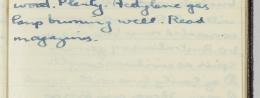 wood. Plenty. Acetylene gas
lamp burning well. Read
magazines.